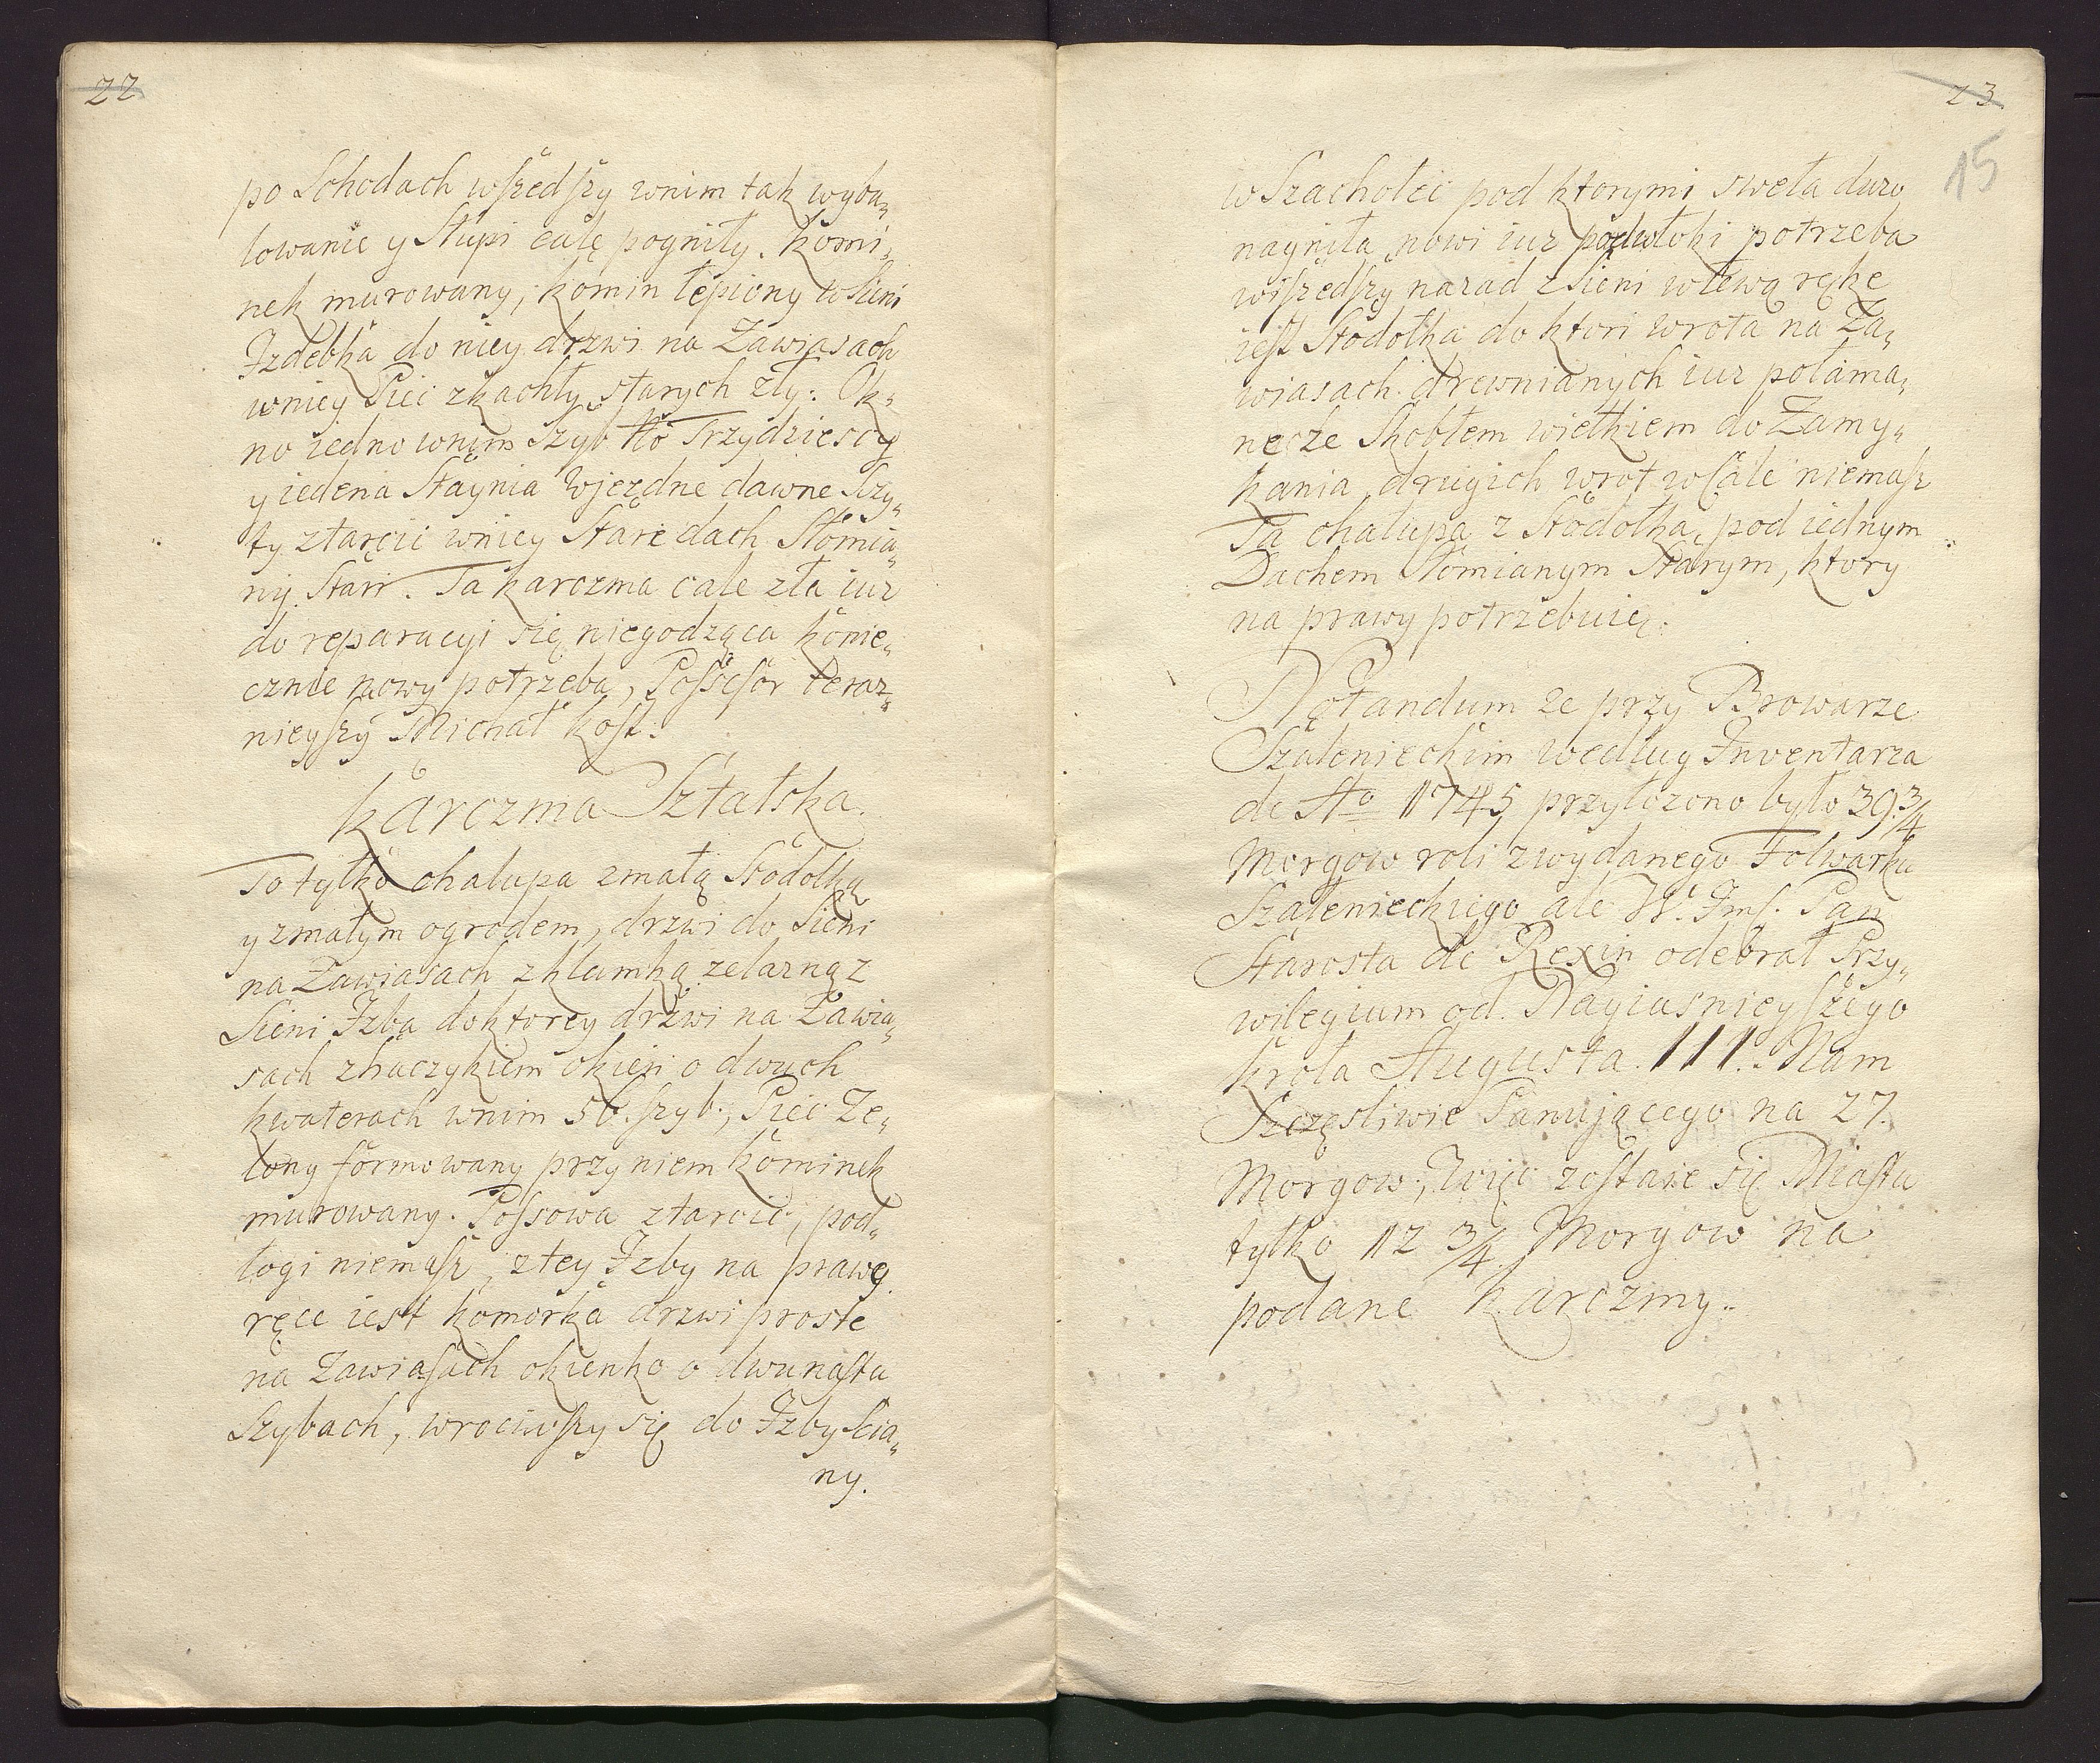 22
po Schodach wszedszy wnim tak wyba„
lowanie y Słupi całe pogniły. Komi„
nek murowany, komin lepiony w Sieni
Izdebka do niey drzwi na Zawiasach
wniey Piec zkachly starych zły: Ok„
no iedno wnim szyb tło Trzydziescy
y iedena Staynia Wjezdne dawne Szy„
ty ztarcic wniey Stare dach Słomia„
nij Stari. Ta karczma cale zła iuz
do reparacyi się niegodząca konie„
cznie nowy potrzeba, Possessor teraz„
nieyszy Michał Kost:
Karczma Sztalska.
To tylko chalupa zmałą Stodołką
y zmałym ogrodem, drzwi do Sieni
na Zawiasach zklamką zelazną z
Sieni Izba doktorey drzwi na Zawia„
sach zhaczykiem okien o dwuch
kwaterach wnim 56. szyb., Piec Ze„
lony formowany przy niem kominek
murowany. Possowa ztarcic, pod„
łogi niemasz, ztey Izby na prawę
ręce iest komorka drzwi proste
na Zawiasach okienko o dwunastu
Szybach, wrociwszy się do Izby Scia„
ny.
23
15
w Szacholec pod ktorymi sweła duzo
nagniła nowi iuz podwłoki potrzeba
wiszedszy narad zsieni wlewą rękę
iest Stodołka do ktori wrota na Za„
wiasach drewnianych iuz połama„
ne cze Skoblem wielkiem do Zamy„
kania drugich wrot wcale niemasz
Ta chalupa z Stodołką pod iednym
Dachem Słomianym Starym, ktory
na prawy potrzebuię:
Notandum ze przy Browarze
Szalenieckim według Inventarza
de Ao 1745 przyłozono było 39 3/4
Morgow roli zwydanego Folwarku
Szalenieckiego ale W. Jms. Pan
Starosta de Rexin odebrał Przy„
wilegium od Nayiasnieyszego
Krola Augusta III. Nam
Szczęsliwie Panującego na 27.
Morgow; Więc zostaie się Miastu
tylko 12 3/4 Morgow na
podane Karczmy.